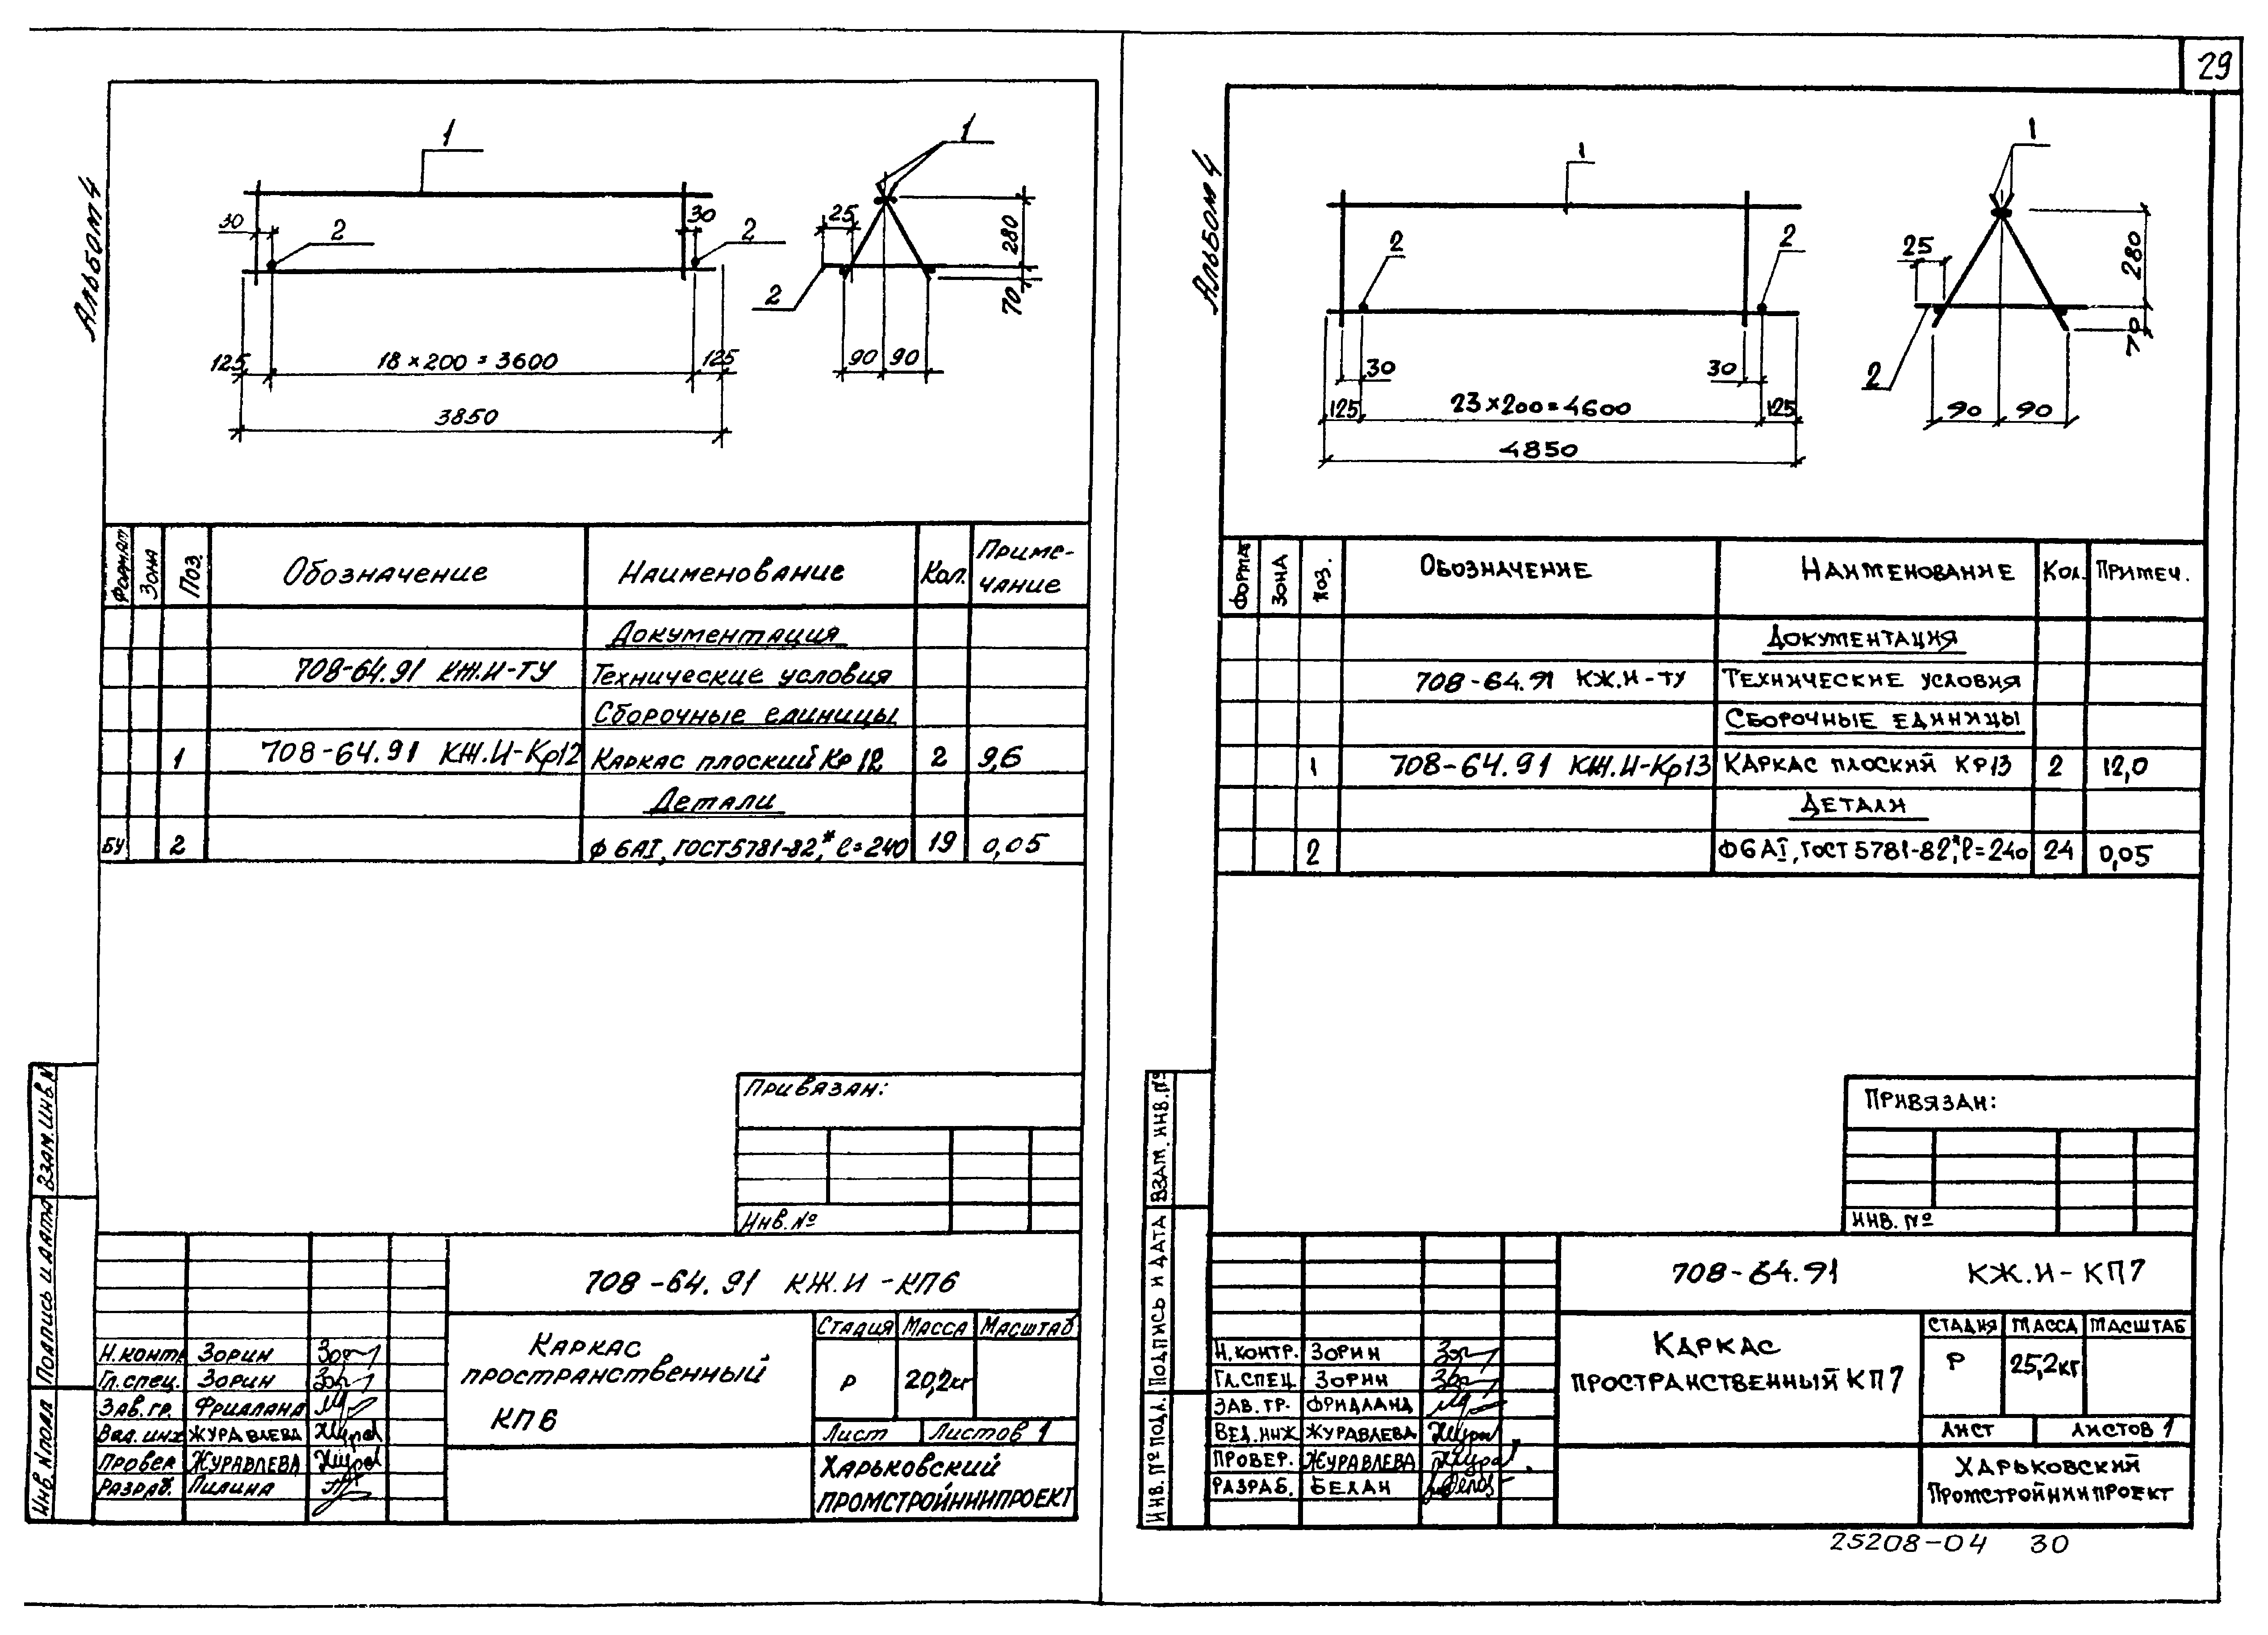 29
Альбом 4
1
1
30
2
30
2
25
280
70
2
125
18×200=3600
125
90
90
3850
Формат
Зона
Поз.
Обозначение
Наименование
Кол.
Приме-
чание
Документация
708-64.91 КЖ.И-ТУ Технические условия
Сборочные единицы
1 708-64.91 КЖ.И-Кр12 Каркас плоский Кр12 2 9,6
Детали
БУ 2 Ф6АI, ГОСТ 5781-82*, ℓ=240 19 0,05
Привязан:
Инв. №
Взам. инв. №
Подпись и дата
Инв. № подл
708-64.91 КЖ.И-КП6
Каркас
пространственный
КП6
Стадия Масса Масштаб
Р 20,2кг
Лист Листов 1
Харьковский
ПРОМСТРОЙНИИПРОЕКТ
Н.контр. Зорин
Гл.спец. Зорин
Зав.гр. Фридланд
Вед.инж Журавлева
Провер Журавлева
Разраб. Пилина
Альбом 4
1
1
2
2
25
280
70
2
30
30
125
23×200=4600
125
90
90
4850
Форма
Зона
Поз.
Обозначение
Наименование
Кол.
Примеч.
Документация
708-64.91 КЖ.И-ТУ Технические условия
Сборочные единицы
1 708-64.91 КЖ.И-Кр13 Каркас плоский КР13 2 12,0
Детали
2 Ф6АI, ГОСТ 5781-82*, ℓ=240 24 0,05
Привязан:
Инв. №
Взам. инв. №
Подпись и дата
Инв. № подл.
708-64.91 КЖ.И-КП7
Каркас
пространственный КП7
Стадия Масса Масштаб
Р 25,2кг
Лист Листов 1
Харьковский
Промстройниипроект
Н.контр. Зорин
Гл.спец Зорин
Зав.гр. Фридланд
Вед.инж Журавлева
Провер. Журавлева
Разраб. Белан
25208-04 30